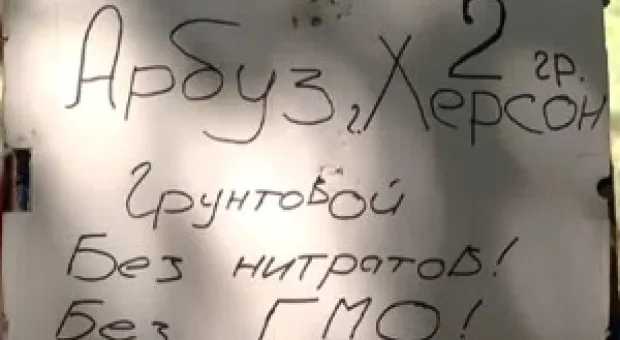 Арбуз, г. Херсон 2 гр.
Грунтовой
Без нитратов!
Без ГМО!